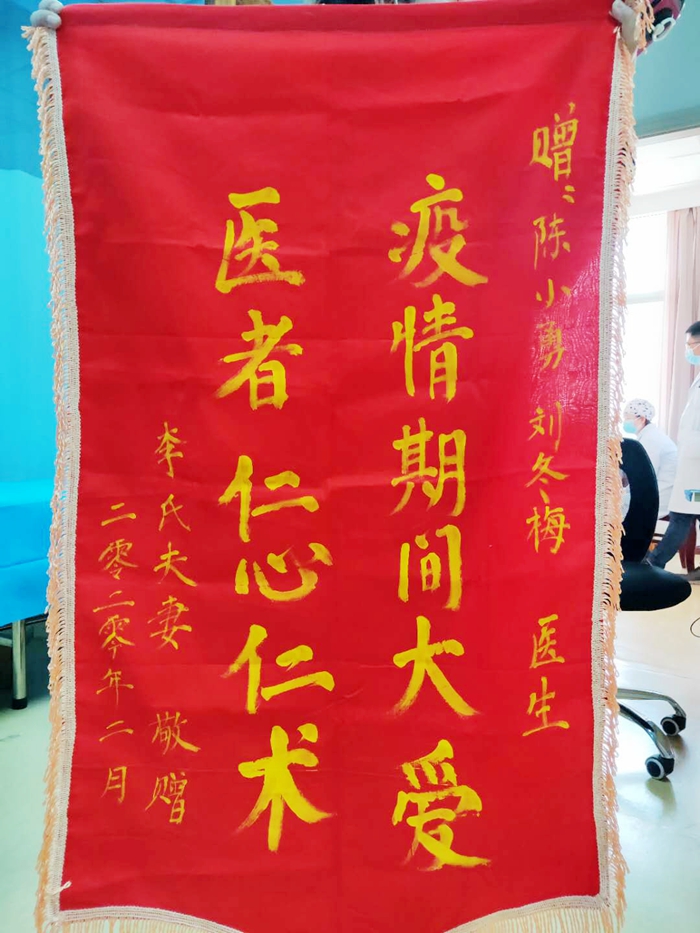 赠：陈小勇 刘冬梅 医生
疫情期间大爱
医者仁心仁术
李氏夫妻 敬赠
二零二零年二月